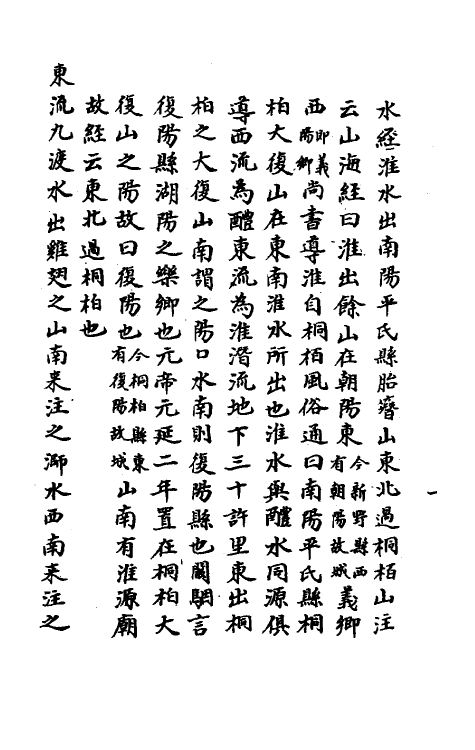 水經淮水出南陽平氏縣胎簪山東北過桐栢山注
云山海經曰淮出餘山在朝陽東今新野縣西有朝陽故城義鄉
西即義陽鄉尚書導淮自桐栢風俗通曰南陽平氏縣桐
柏大復山在東南淮水所出也淮水與醴水同源俱
導西流為醴東流為淮潛流地下三十許里東出桐
柏之大復山南謂之陽口水南則復陽縣也闞駰言
復陽縣湖陽之樂鄉也元帝元延二年置在桐柏大
復山之陽故曰復陽也今桐柏縣東有復陽故城山南有淮源廟
故經云東北過桐柏也
東流九渡水出雞翅之山南来注之㴲水西南来注之
一